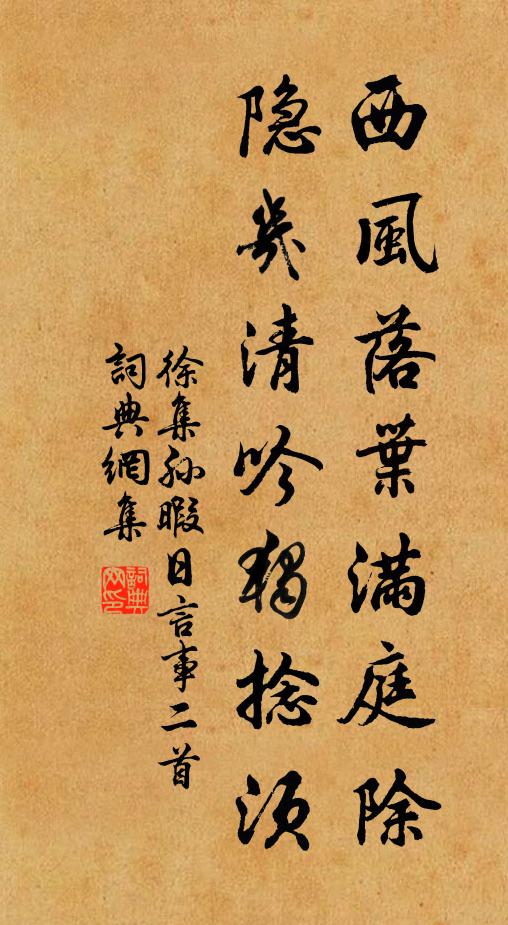 西風落葉滿庭除
隐幾清吟獨捻須
徐集孙暇日言事二首
詞典網集
詞典
网印